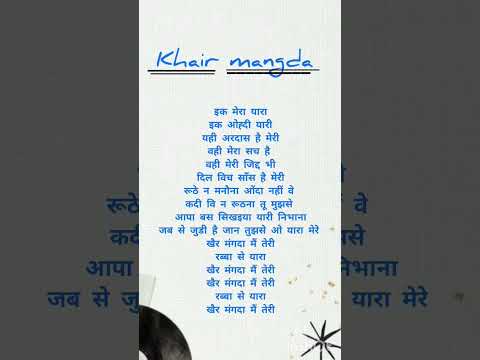 Khair mangda
इक मेरा यारा
इक ओह्दी यारी
यही अरदास है मेरी
वही मेरा सच है
वही मेरी जिद्द भी
दिल विच साँस है मेरी
रूठे न मनौना ऑदा नहीं वे
कदी वि न रूठना तू मुझसे
आपा बस सिखइया यारी निभाना
जब से जुडी है जान तुझसे ओ यारा मेरे
खैर मंगदा मैं तेरी
रब्बा से यारा
खैर मंगदा मैं तेरी
खैर मंगदा मैं तेरी
रब्बा से यारा
खैर मंगदा मैं तेरी